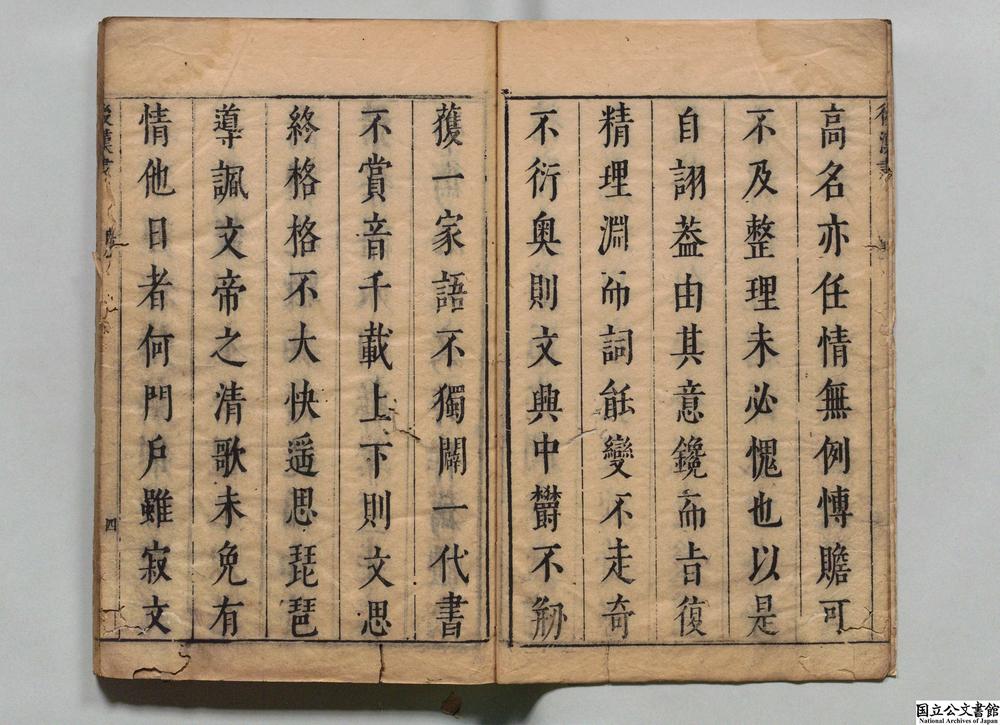 高名亦任情無例愽贍可
不及整理未必愧也以是
自詡葢由其意鑱而㫖復
精理淵而詞能變不走奇
不衍奥則文興中欝不
獲一家語不獨闢一代書
不賞音千載上下則文思
終格格不大快遥思琵琶
導諷文帝之清歌未免有
情他日者何門戶雖寂文
四
国立公文書館
National Archives of Japan